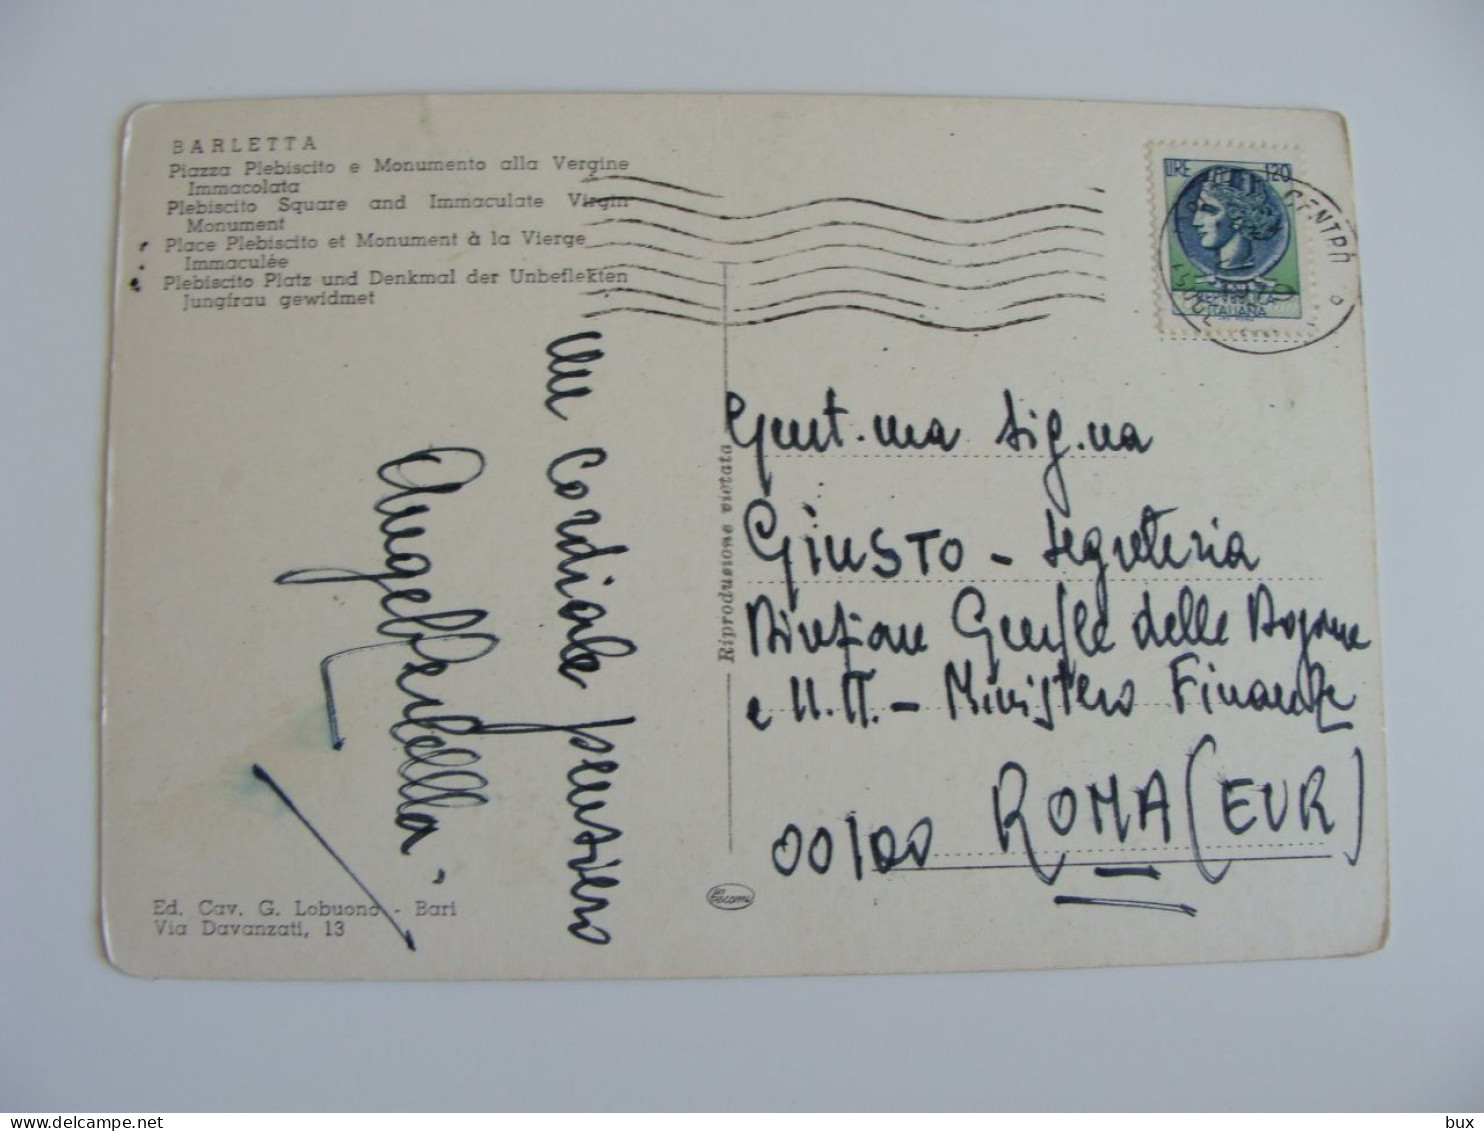 BARLETTA
Piazza Plebiscito e Monumento alla Vergine
Immacolata
Plebiscito Square and Immaculate Virgin
Monument
Place Plebiscito et Monument à la Vierge
Immaculée
Plebiscito Platz und Denkmal der Unbeflekten
Jungfrau gewidmet
LIRE 120
REPVBBLICA
ITALIANA
CENTRO
un cordiale pensiero
Riproduzione vietata
Gent.ma Sig.na
GIUSTO - Segreteria
Direzione Gen.le delle Dogane
e II.II. - Ministero Finanze
00100 ROMA (EUR)
Ed. Cav. G. Lobuono - Bari
Via Davanzati, 13
bux